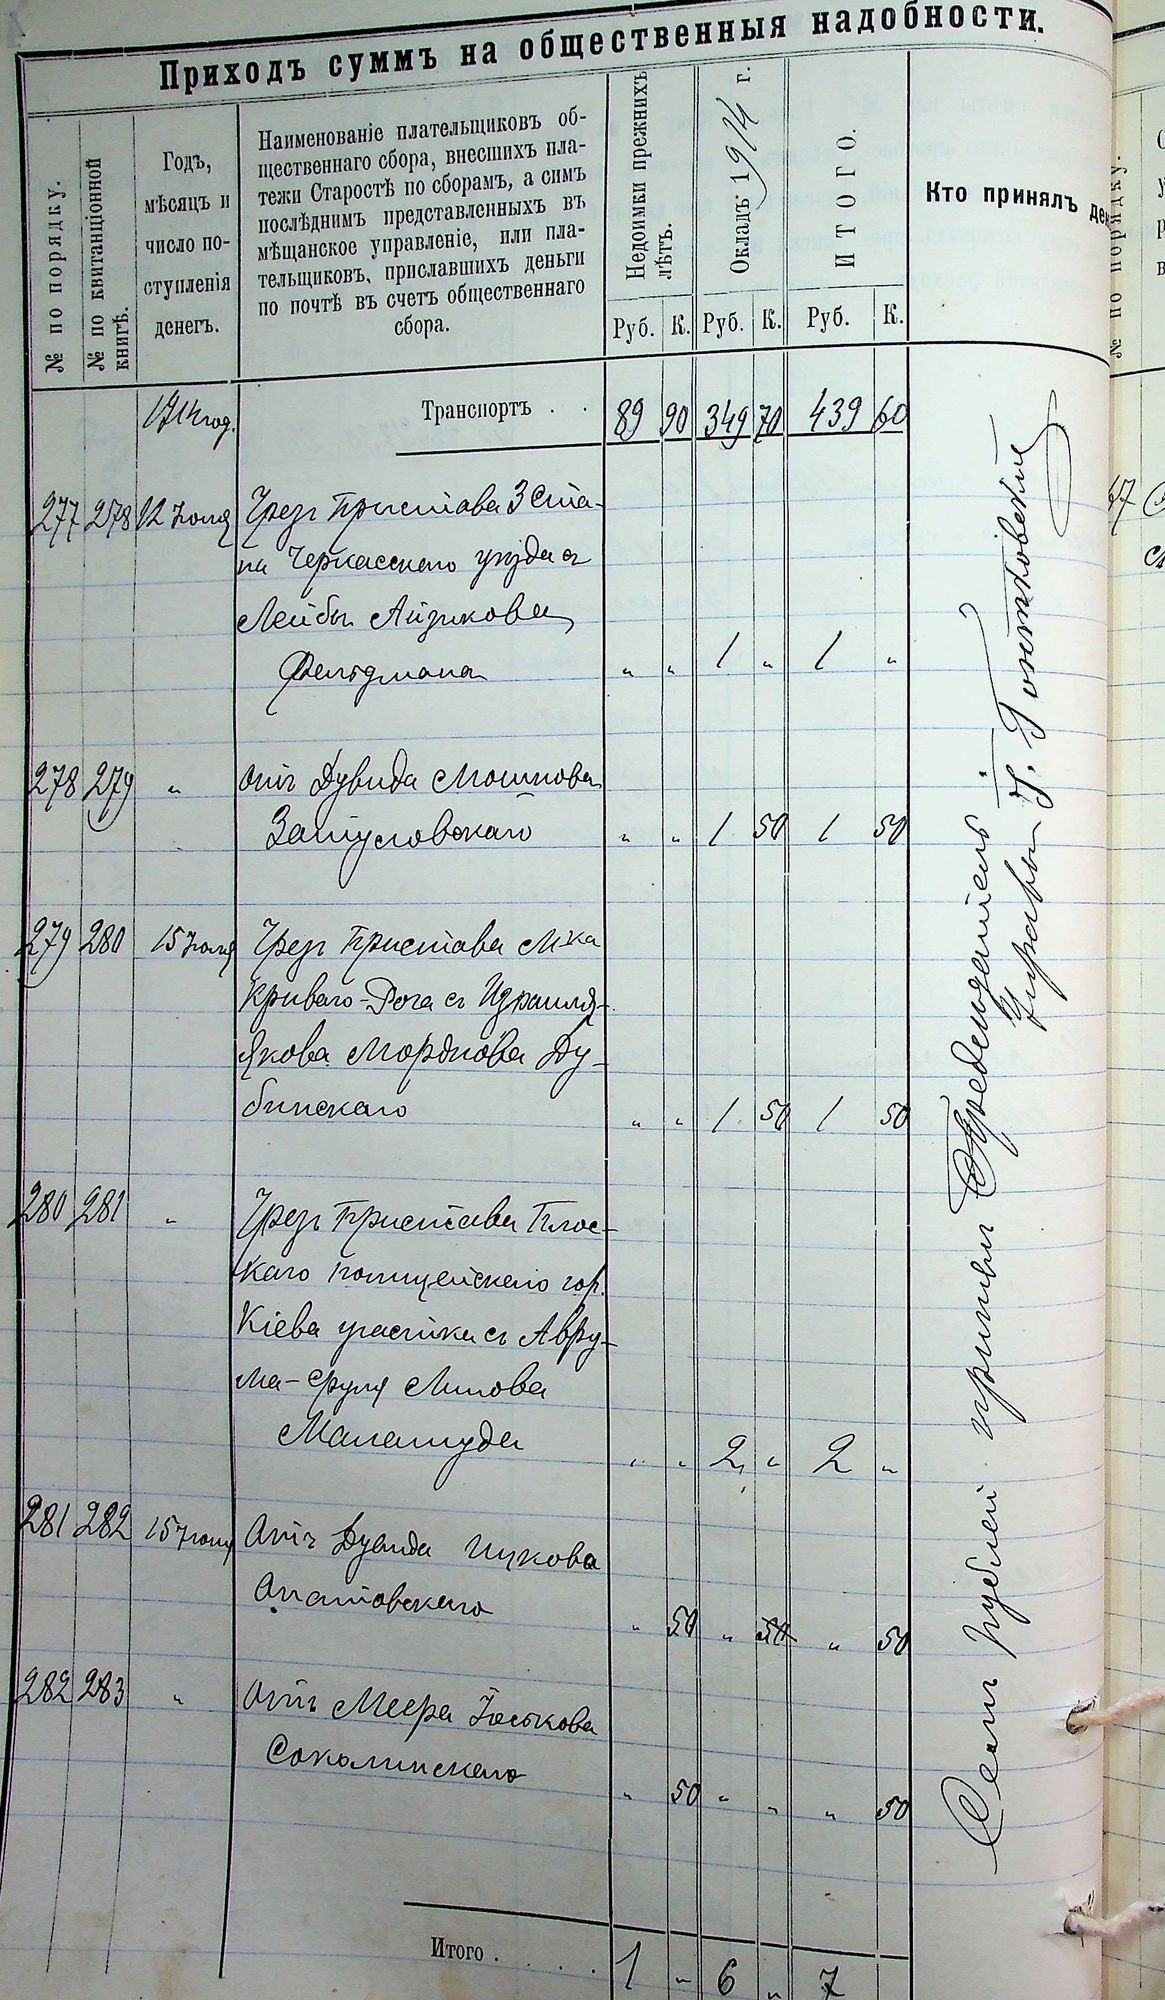 Приходъ суммъ на общественныя надобности.
№ по порядку.
№ по квитанціонной
книгѣ.
Годъ,
мѣсяцъ и
число по-
ступленія
денегъ.
Наименованіе плательщиковъ об-
щественнаго сбора, внесшихъ пла-
тежи Старостѣ по сборамъ, а симъ
послѣднимъ представленныхъ въ
мѣщанское управленіе, или пла-
тельщиковъ, приславшихъ деньги
по почтѣ въ счетъ общественнаго
сбора.
Недоимки прежнихъ
лѣтъ.
Окладъ 1914 г.
ИТОГО.
Руб. К. Руб. К. Руб. К.
Кто принялъ ден
1914 год. Транспортъ . . 89 90 349 70 439 60
277 278 12 Іюля Чрез Пристава 3 Ста-
на Черкасскаго уѣзда съ
Лейбы Айзикова
Фельдмана " " 1 " 1 "
278 279 " Отъ Дувида Мошкова
Затуловскаго " " 1 50 1 50
279 280 15 Іюля Чрез Пристава М-ка
Кривого-Рога съ Израиля-
Якова Мордкова Ду-
бинскаго " " 1 50 1 50
280 281 " Чрез Пристава Плос-
каго полицейскаго гор.
Кіева участка съ Авру-
ма-Сруля
" " 2 " 2 "
281 282 15 Іюля Отъ Дувида Ицкова
Опатовскаго " 50 " 50 " 50
282 283 " Отъ Меера Іоськова
Соколинскаго " 50 " " " 50
Итого . . . . 1 " 6 " 7
Семь рублей принялъ Предсѣдатель
Управы
№ по порядку.